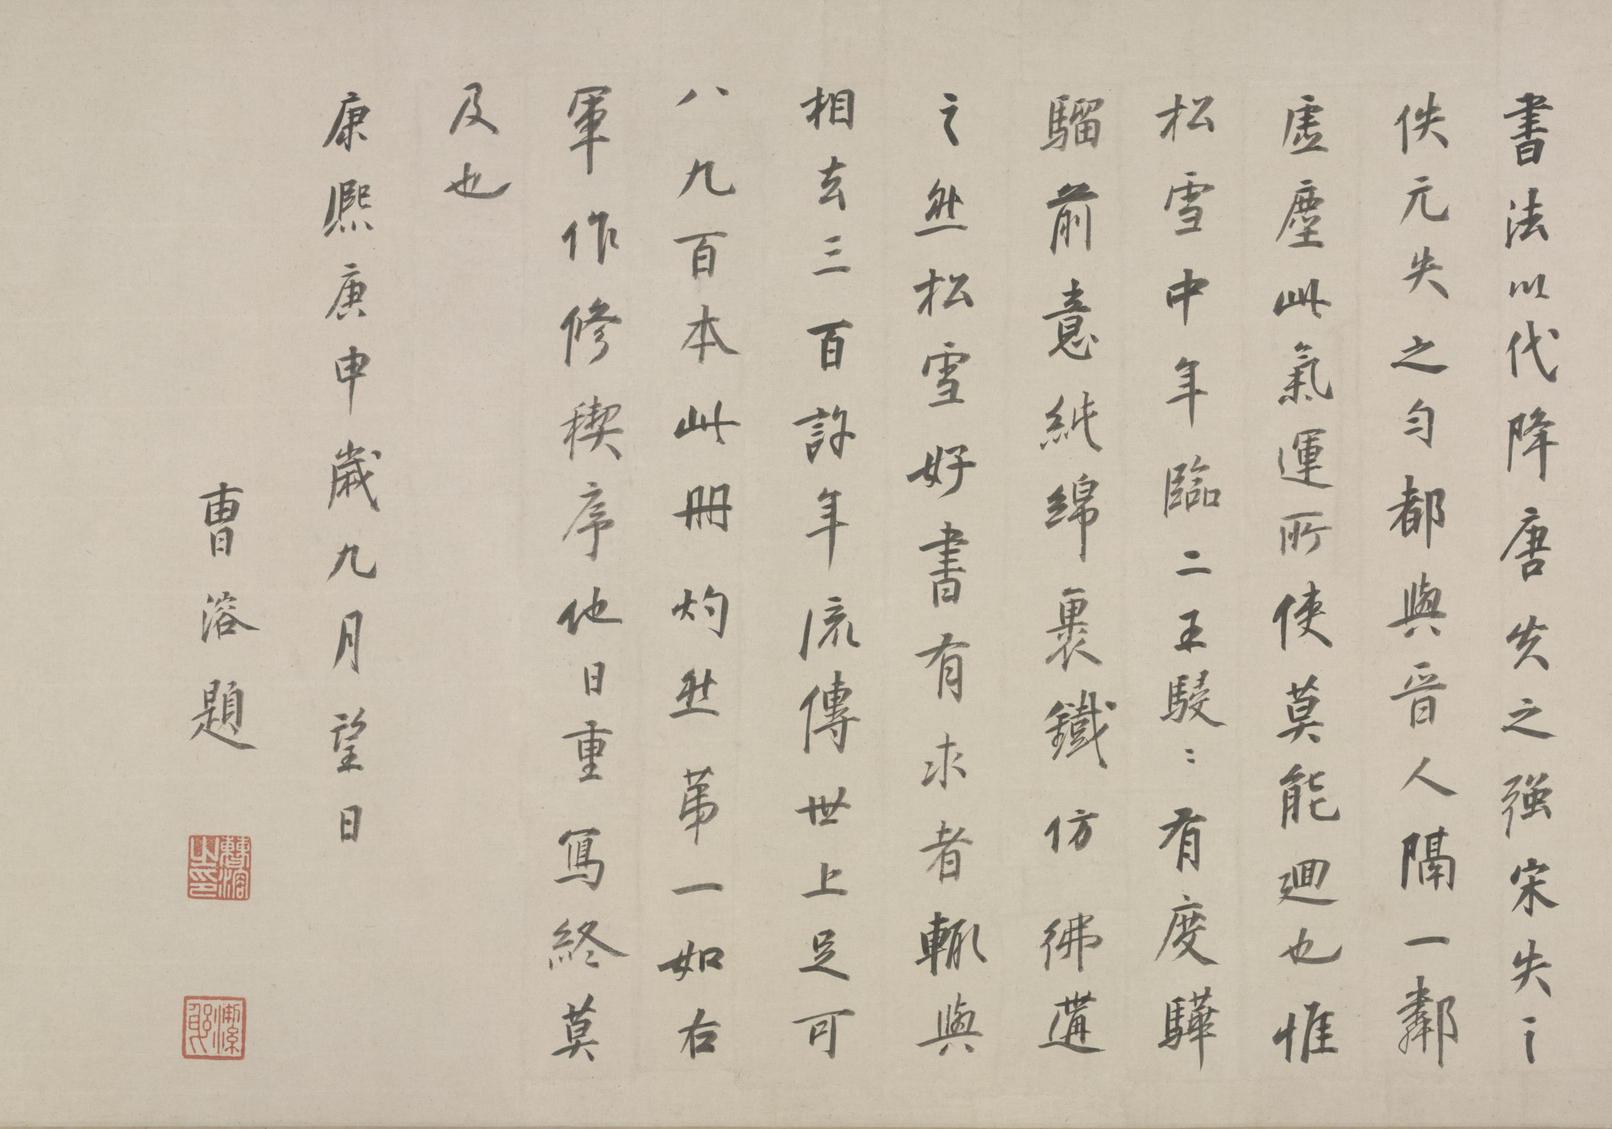 書法以代降唐失之强宋失之
佚元失之匀都與晉人隔一鄰
虛塵此氣運所使莫能迴也惟
松雪中年臨二王駸〻有度驊
騮前意純綿裹鐵仿彿遘
之然松雪好書有求者輒與
相去三百許年流傳世上足可
八九百本此冊灼然第一如右
軍作修禊序他日重寫終莫
及也
康熙庚申歲九月望日
曹溶題
曹溶之印
潔躬